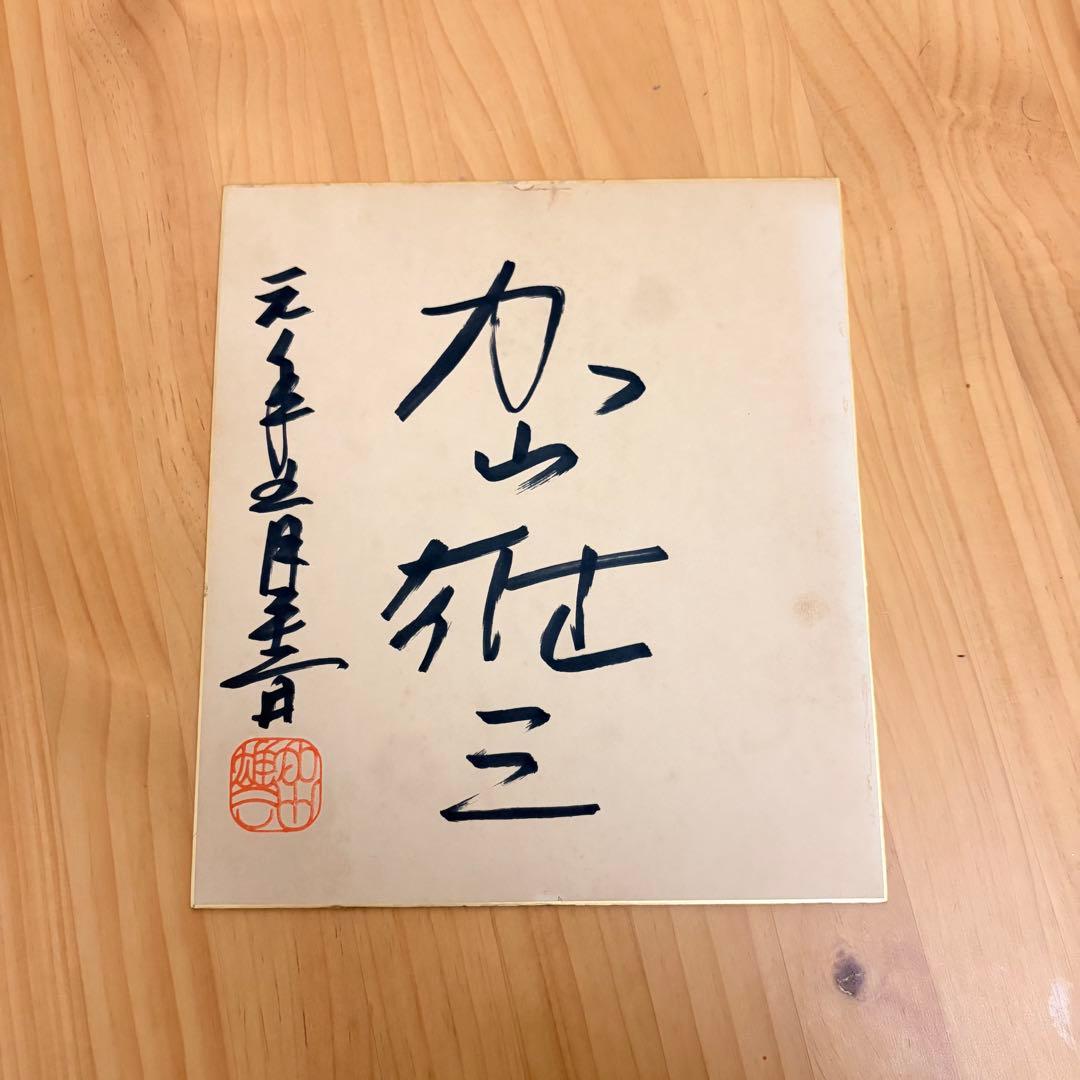 加山雄三
元年五月
加山雄三